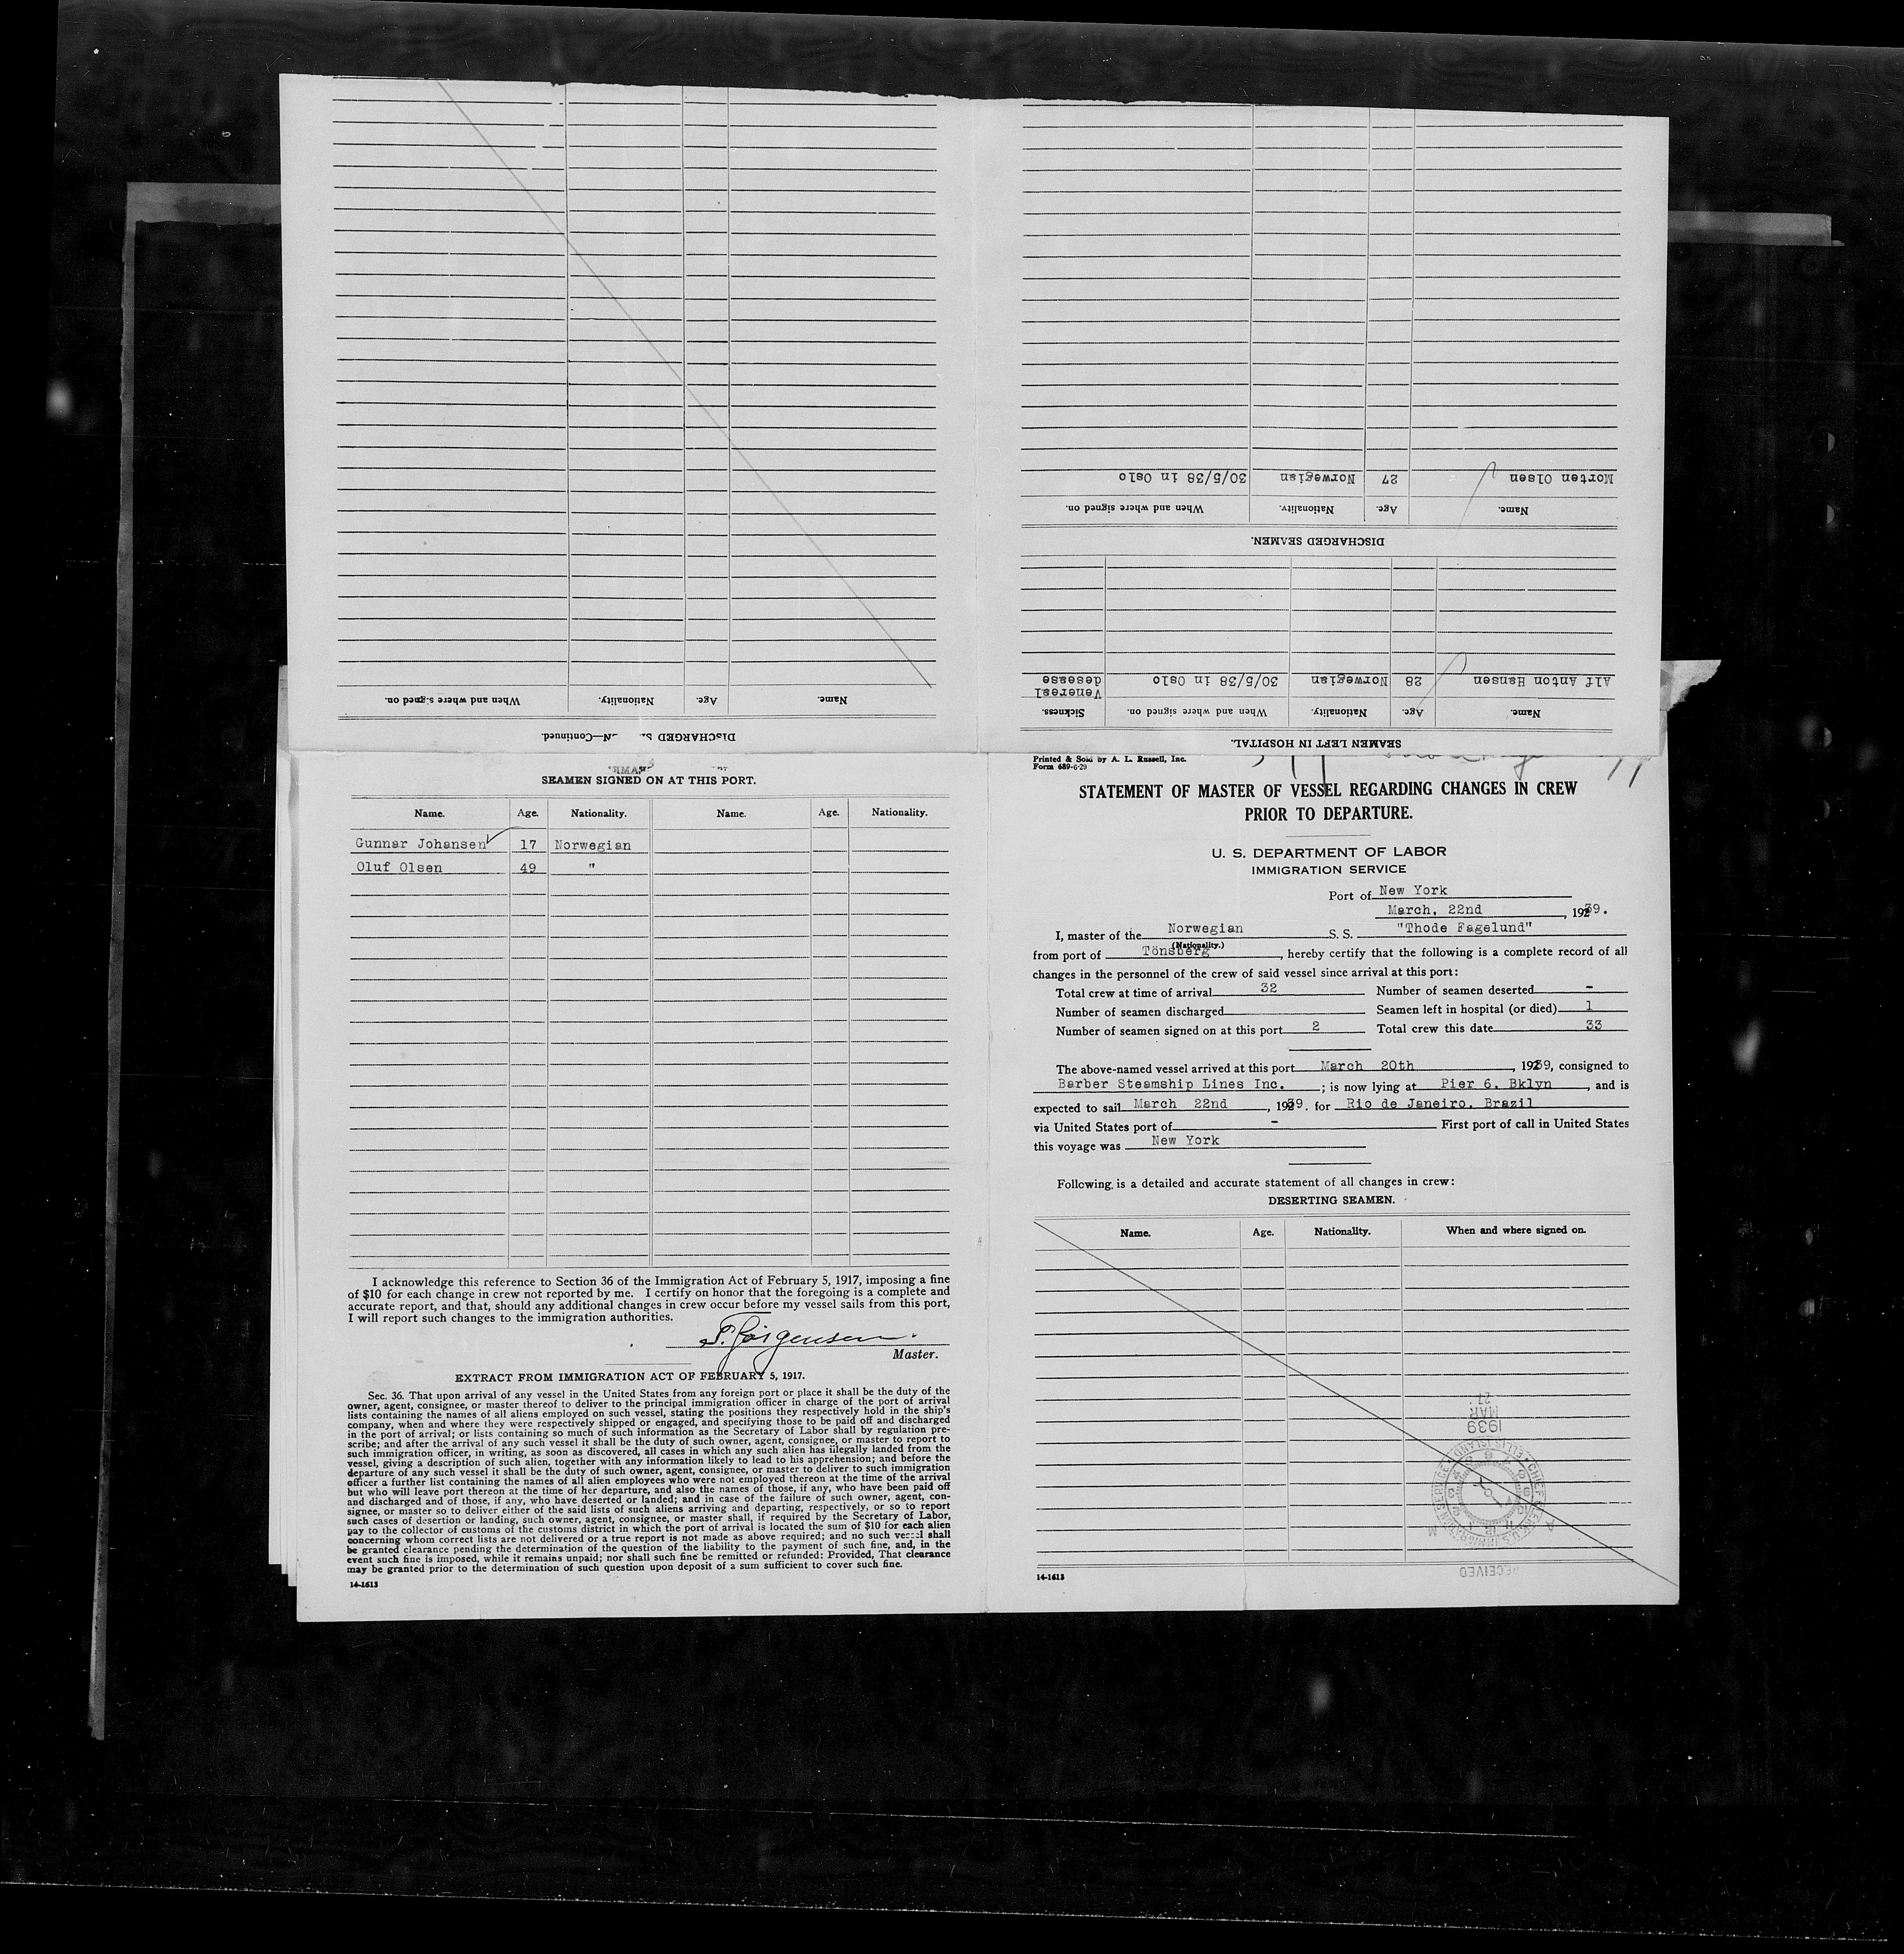 DISCHARGED S. N—Continued.
Name. Age. Nationality. When and where signed on.
SEAMEN LEFT IN HOSPITAL.
Name. Age. Nationality. When and where signed on. Sickness.
Alf Anton Hansen 28 Norwegian 30/5/38 in Oslo Venereal
desease
DISCHARGED SEAMEN.
Name. Age. Nationality. When and where signed on.
Morten Olsen 27 Norwegian 30/5/38 in Oslo
SEAMEN SIGNED ON AT THIS PORT.
Name. Age. Nationality. Name. Age. Nationality.
Gunnar Johansen 17 Norwegian
Oluf Olsen 49 "
I acknowledge this reference to Section 36 of the Immigration Act of February 5, 1917, imposing a fine
of $10 for each change in crew not reported by me. I certify on honor that the foregoing is a complete and
accurate report, and that, should any additional changes in crew occur before my vessel sails from this port,
I will report such changes to the immigration authorities.
Jörgensen
Master.
EXTRACT FROM IMMIGRATION ACT OF FEBRUARY 5, 1917.
Sec. 36. That upon arrival of any vessel in the United States from any foreign port or place it shall be the duty of the
owner, agent, consignee, or master thereof to deliver to the principal immigration officer in charge of the port of arrival
lists containing the names of all aliens employed on such vessel, stating the positions they respectively hold in the ship's
company, when and where they were respectively shipped or engaged, and specifying those to be paid off and discharged
in the port of arrival; or lists containing so much of such information as the Secretary of Labor shall by regulation pre-
scribe; and after the arrival of any such vessel it shall be the duty of such owner, agent, consignee, or master to report to
such immigration officer, in writing, as soon as discovered, all cases in which any such alien has illegally landed from the
vessel, giving a description of such alien, together with any information likely to lead to his apprehension; and before the
departure of any such vessel it shall be the duty of such owner, agent, consignee, or master to deliver to such immigration
officer a further list containing the names of all alien employees who were not employed thereon at the time of the arrival
but who will leave port thereon at the time of her departure, and also the names of those, if any, who have been paid off
and discharged and of those, if any, who have deserted or landed; and in case of the failure of such owner, agent, con-
signee, or master so to deliver either of the said lists of such aliens arriving and departing, respectively, or so to report
such cases of desertion or landing, such owner, agent, consignee, or master shall, if required by the Secretary of Labor,
pay to the collector of customs of the customs district in which the port of arrival is located the sum of $10 for each alien
concerning whom correct lists are not delivered or a true report is not made as above required; and no such vessel shall
be granted clearance pending the determination of the question of the liability to the payment of such fine, and, in the
event such fine is imposed, while it remains unpaid; nor shall such fine be remitted or refunded: Provided, That clearance
may be granted prior to the determination of such question upon deposit of a sum sufficient to cover such fine.
14-1613
Printed & Sold by A. L. Russell, Inc.
Form 689-6-29
STATEMENT OF MASTER OF VESSEL REGARDING CHANGES IN CREW
PRIOR TO DEPARTURE.
U. S. DEPARTMENT OF LABOR
IMMIGRATION SERVICE
Port of New York
March, 22nd, 1939.
I, master of the Norwegian S. S. "Thode Fagelund"
(Nationality.)
from port of Tönsberg, hereby certify that the following is a complete record of all
changes in the personnel of the crew of said vessel since arrival at this port:
Total crew at time of arrival 32 Number of seamen deserted -
Number of seamen discharged Seamen left in hospital (or died) 1
Number of seamen signed on at this port 2 Total crew this date 33
The above-named vessel arrived at this port March 20th, 1939, consigned to
Barber Steamship Lines Inc.; is now lying at Pier 6. Bklyn, and is
expected to sail March 22nd, 1939. for Rio de Janeiro. Brazil
via United States port of - First port of call in United States
this voyage was New York
Following is a detailed and accurate statement of all changes in crew:
DESERTING SEAMEN.
Name. Age. Nationality. When and where signed on.
RECEIVED
1939
MAR
27
14-1613